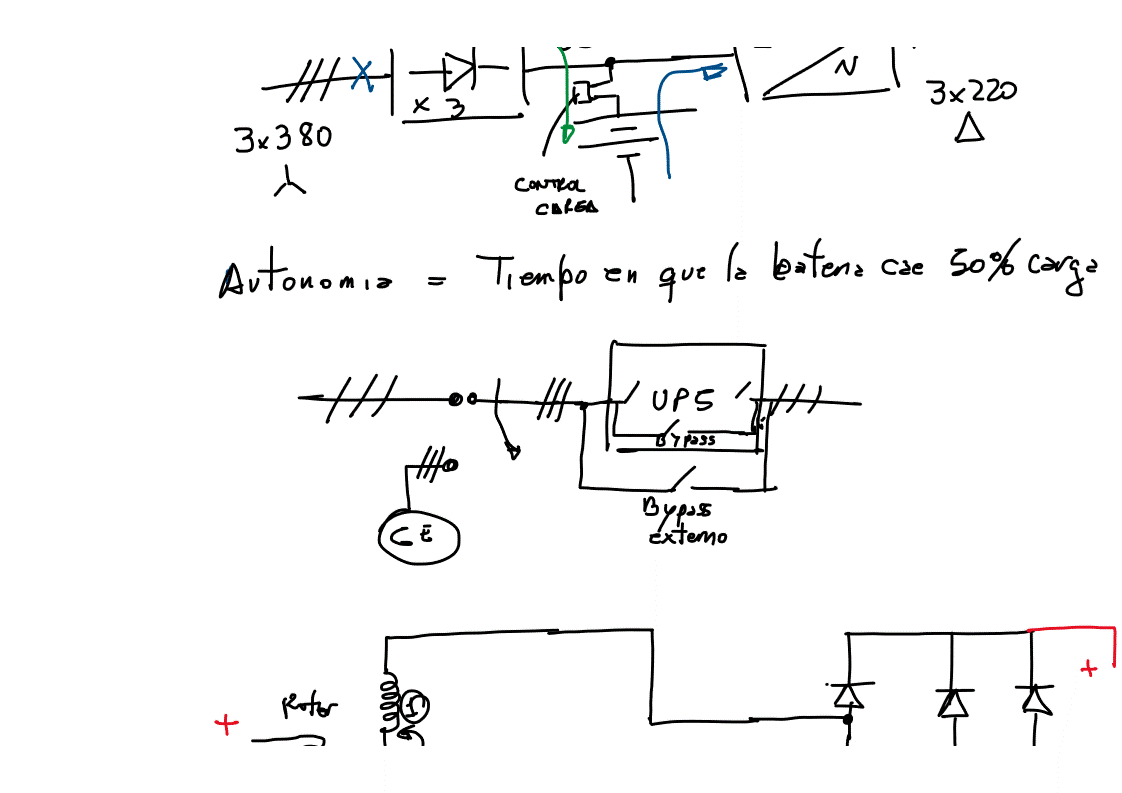 x 3
N
3x220
Δ
3x380
CONTROL
CARGA
Autonomia = Tiempo en que la bateria cae 50% carga
UPS
Bypass
Bypass
externo
GE
+
Rotor
+